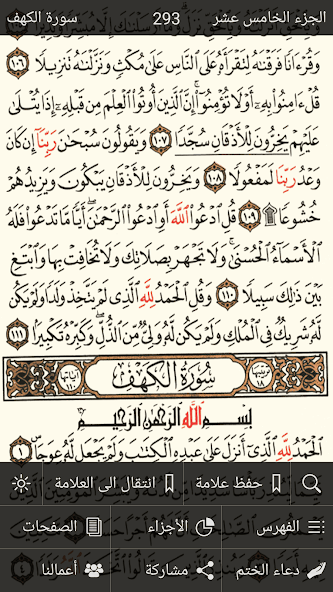 الجزء الخامس عشر 293 سورة الكهف
وَقُرْءَانًا فَرَقْنَٰهُ لِتَقْرَأَهُۥ عَلَى ٱلنَّاسِ عَلَىٰ مُكْثٍ وَنَزَّلْنَٰهُ تَنزِيلًا ١٠٦
قُلْ ءَامِنُوا۟ بِهِۦٓ أَوْ لَا تُؤْمِنُوٓا۟ إِنَّ ٱلَّذِينَ أُوتُوا۟ ٱلْعِلْمَ مِن قَبْلِهِۦٓ إِذَا يُتْلَىٰ
عَلَيْهِمْ يَخِرُّونَ لِلْأَذْقَانِ سُجَّدًا ١٠٧ وَيَقُولُونَ سُبْحَٰنَ رَبِّنَآ إِن كَانَ
وَعْدُ رَبِّنَا لَمَفْعُولًا ١٠٨ وَيَخِرُّونَ لِلْأَذْقَانِ يَبْكُونَ وَيَزِيدُهُمْ
خُشُوعًا ١٠٩ قُلِ ٱدْعُوا۟ ٱللَّهَ أَوِ ٱدْعُوا۟ ٱلرَّحْمَٰنَ أَيًّا مَّا تَدْعُوا۟ فَلَهُ
ٱلْأَسْمَآءُ ٱلْحُسْنَىٰ وَلَا تَجْهَرْ بِصَلَاتِكَ وَلَا تُخَافِتْ بِهَا وَٱبْتَغِ
بَيْنَ ذَٰلِكَ سَبِيلًا ١١٠ وَقُلِ ٱلْحَمْدُ لِلَّهِ ٱلَّذِى لَمْ يَتَّخِذْ وَلَدًا وَلَمْ يَكُن
لَّهُۥ شَرِيكٌ فِى ٱلْمُلْكِ وَلَمْ يَكُن لَّهُۥ وَلِىٌّ مِّنَ ٱلذُّلِّ وَكَبِّرْهُ تَكْبِيرًا ١١١
سُورَةُ الكَهْفِ
بِسْمِ ٱللَّهِ ٱلرَّحْمَٰنِ ٱلرَّحِيمِ
ٱلْحَمْدُ لِلَّهِ ٱلَّذِىٓ أَنزَلَ عَلَىٰ عَبْدِهِ ٱلْكِتَٰبَ وَلَمْ يَجْعَل لَّهُۥ عِوَجَا ١
حفظ علامة انتقال الى العلامة
الفهرس الأجزاء الصفحات
دعاء الختم مشاركة أعمالنا